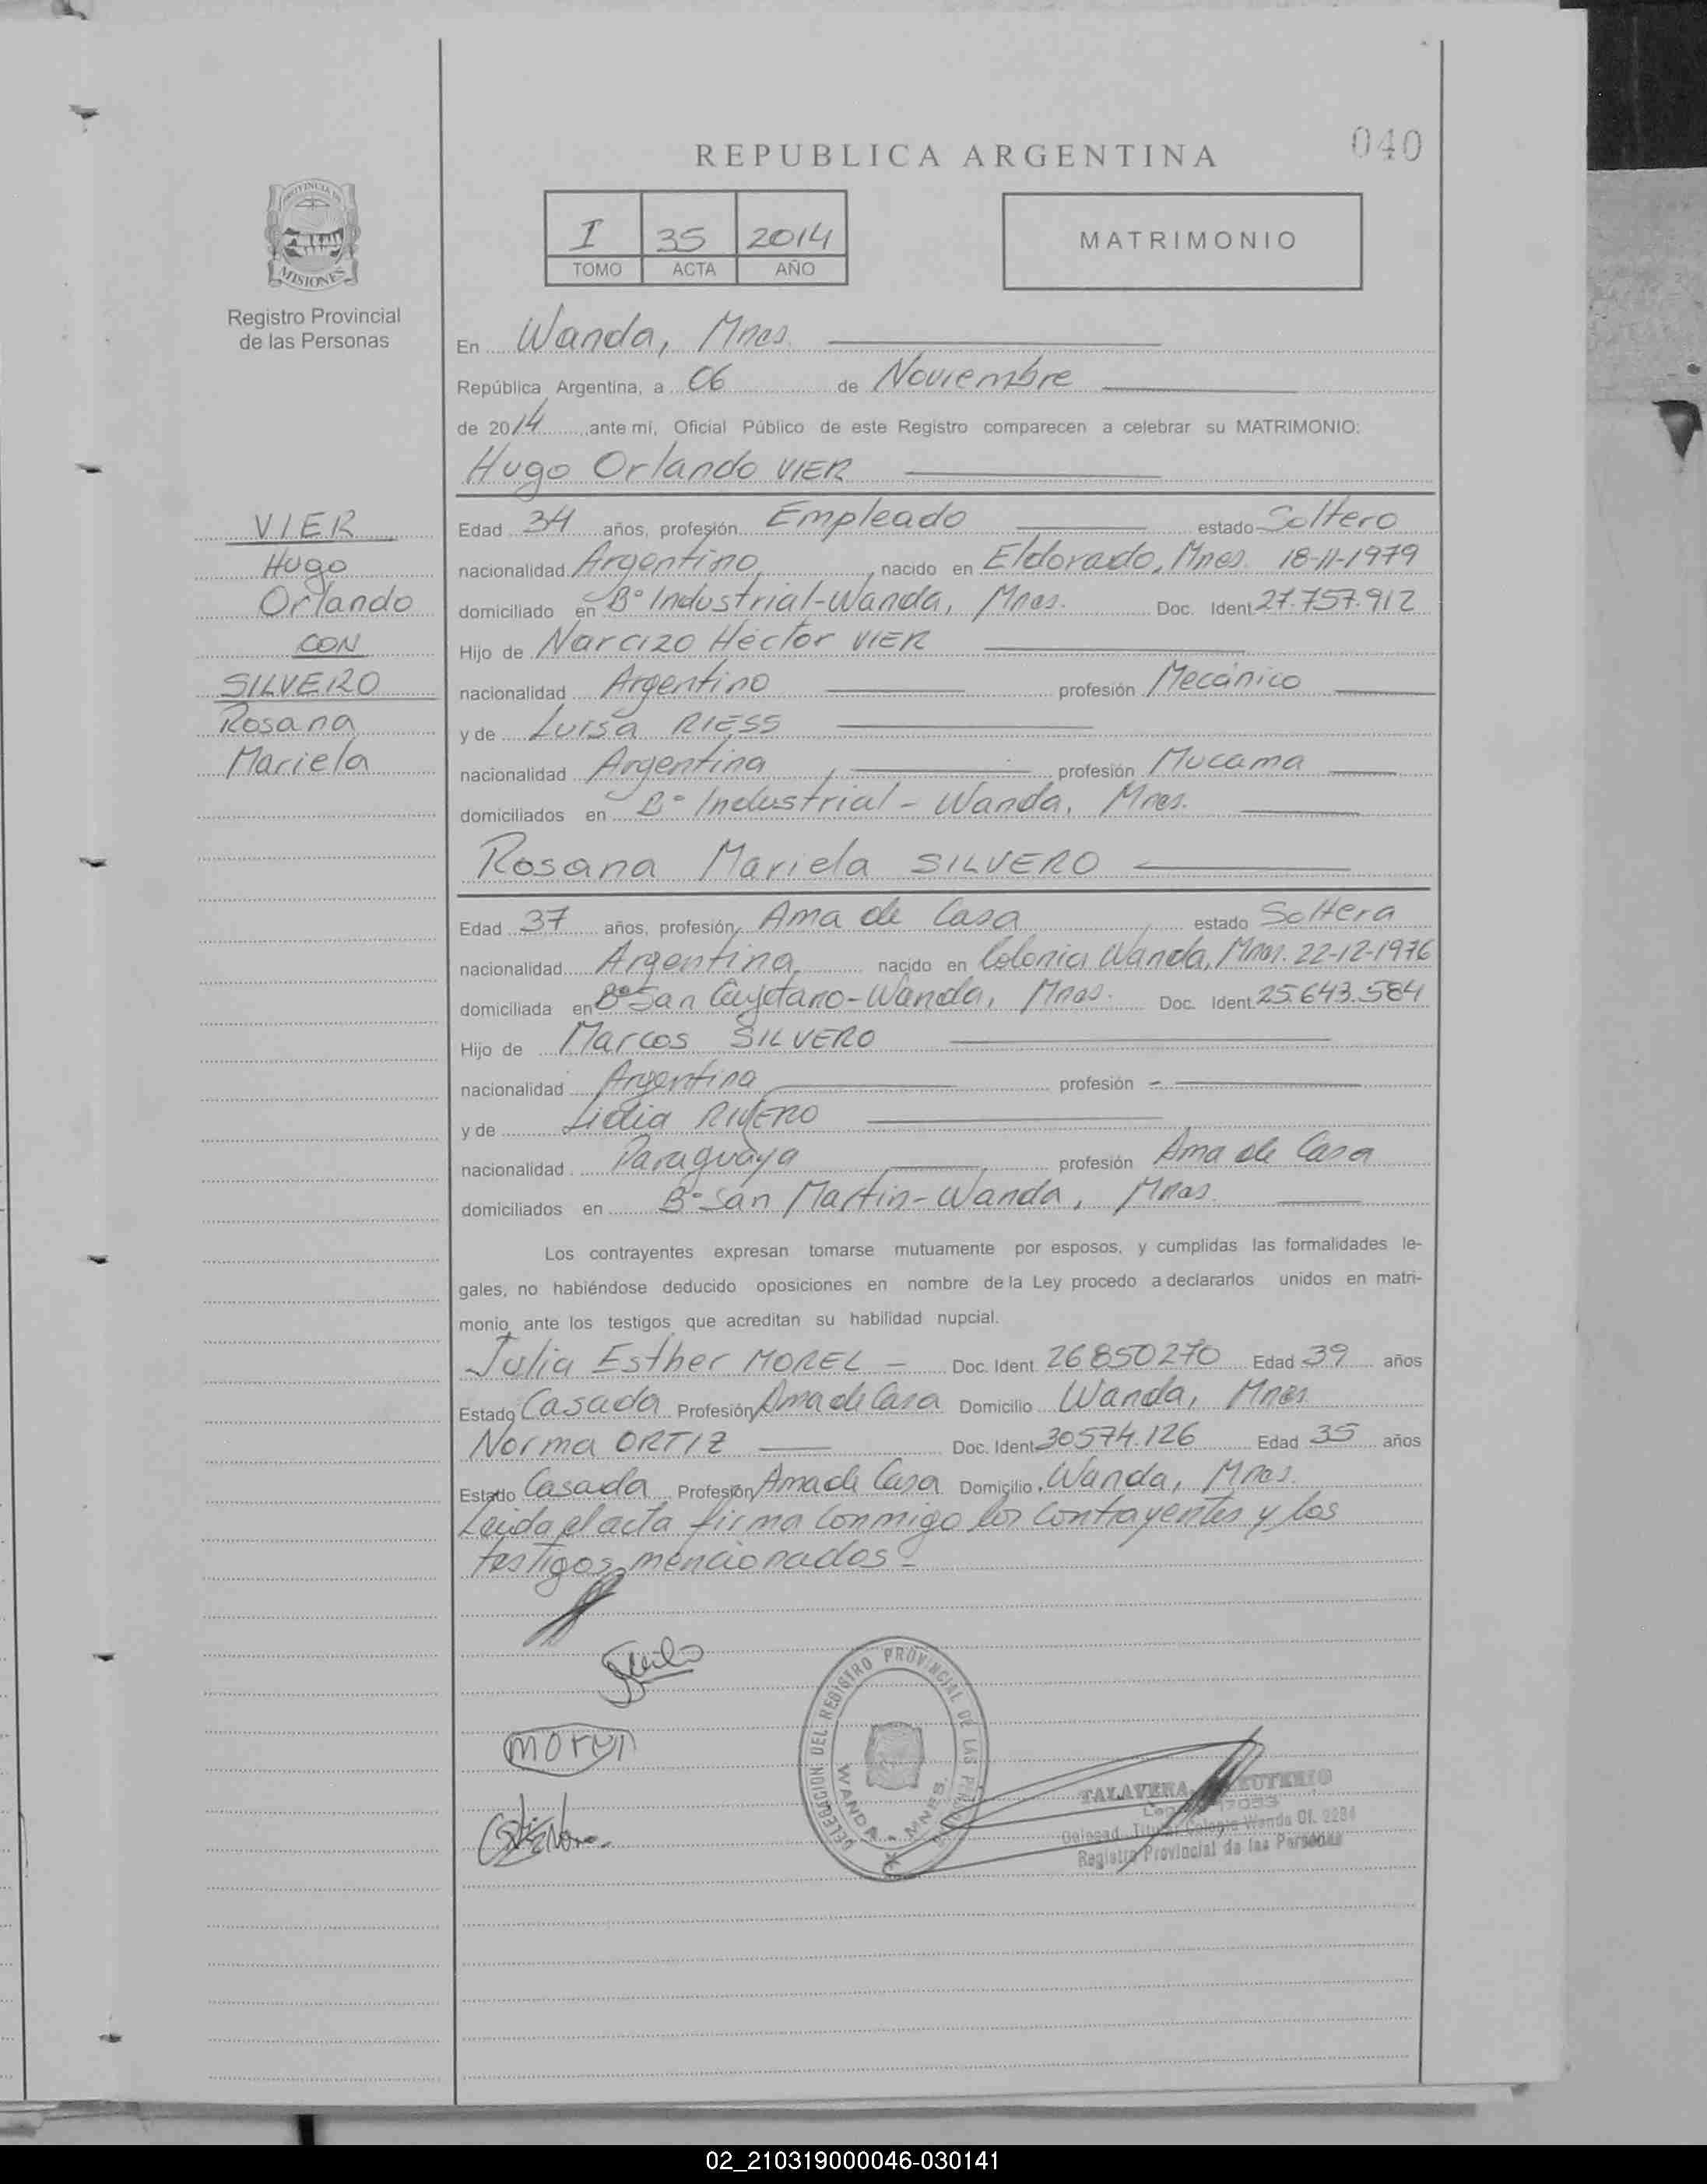 040
REPUBLICA ARGENTINA
I 35 2014
TOMO ACTA AÑO
MATRIMONIO
PROVINCIA DE
MISIONES
Registro Provincial
de las Personas
En Wanda, Mnes.
República Argentina, a 06 de Noviembre
de 2014, ante mí, Oficial Público de este Registro comparecen a celebrar su MATRIMONIO:
Hugo Orlando VIER
VIER
Hugo
Orlando
CON
SILVERO
Rosana
Mariela
Edad 34 años, profesión Empleado estado Soltero
nacionalidad Argentino, nacido en Eldorado, Mnes. 18-11-1979
domiciliado en Bº Industrial-Wanda, Mnes. Doc. Ident. 27.757.912
Hijo de Narcizo Héctor VIER
nacionalidad Argentino profesión Mecánico
y de Luisa RIESS
nacionalidad Argentina, profesión Mucama
domiciliados en Bº Industrial - Wanda, Mnes.
Rosana Mariela SILVERO
Edad 37 años, profesión Ama de Casa estado Soltera
nacionalidad Argentina, nacido en Colonia Wanda, Mnes. 22-12-1976
domiciliada en Bº San Cayetano-Wanda, Mnes. Doc. Ident. 25.643.584
Hijo de Marcos SILVERO
nacionalidad Argentina profesión -
y de Lidia RIVERO
nacionalidad Paraguaya profesión Ama de Casa
domiciliados en Bº San Martin-Wanda, Mnes.
Los contrayentes expresan tomarse mutuamente por esposos, y cumplidas las formalidades le-
gales, no habiéndose deducido oposiciones en nombre de la Ley procedo a declararlos unidos en matri-
monio ante los testigos que acreditan su habilidad nupcial.
Julia Esther MOREL - Doc. Ident. 26850270 Edad 39 años
Estado Casada Profesión Ama de Casa Domicilio Wanda, Mnes
Norma ORTIZ Doc. Ident. 30574.126 Edad 35 años
Estado Casada Profesión Ama de Casa Domicilio Wanda, Mnes.
Leida el acta firma conmigo los contrayentes y los
testigos mencionados-
DELEGACION DEL REGISTRO PROVINCIAL DE LAS PERSONAS
WANDA * MNES.
TALAVERA
Colonia Wanda Of. 2284
Registro Provincial de las Personas
02_210319000046-030141